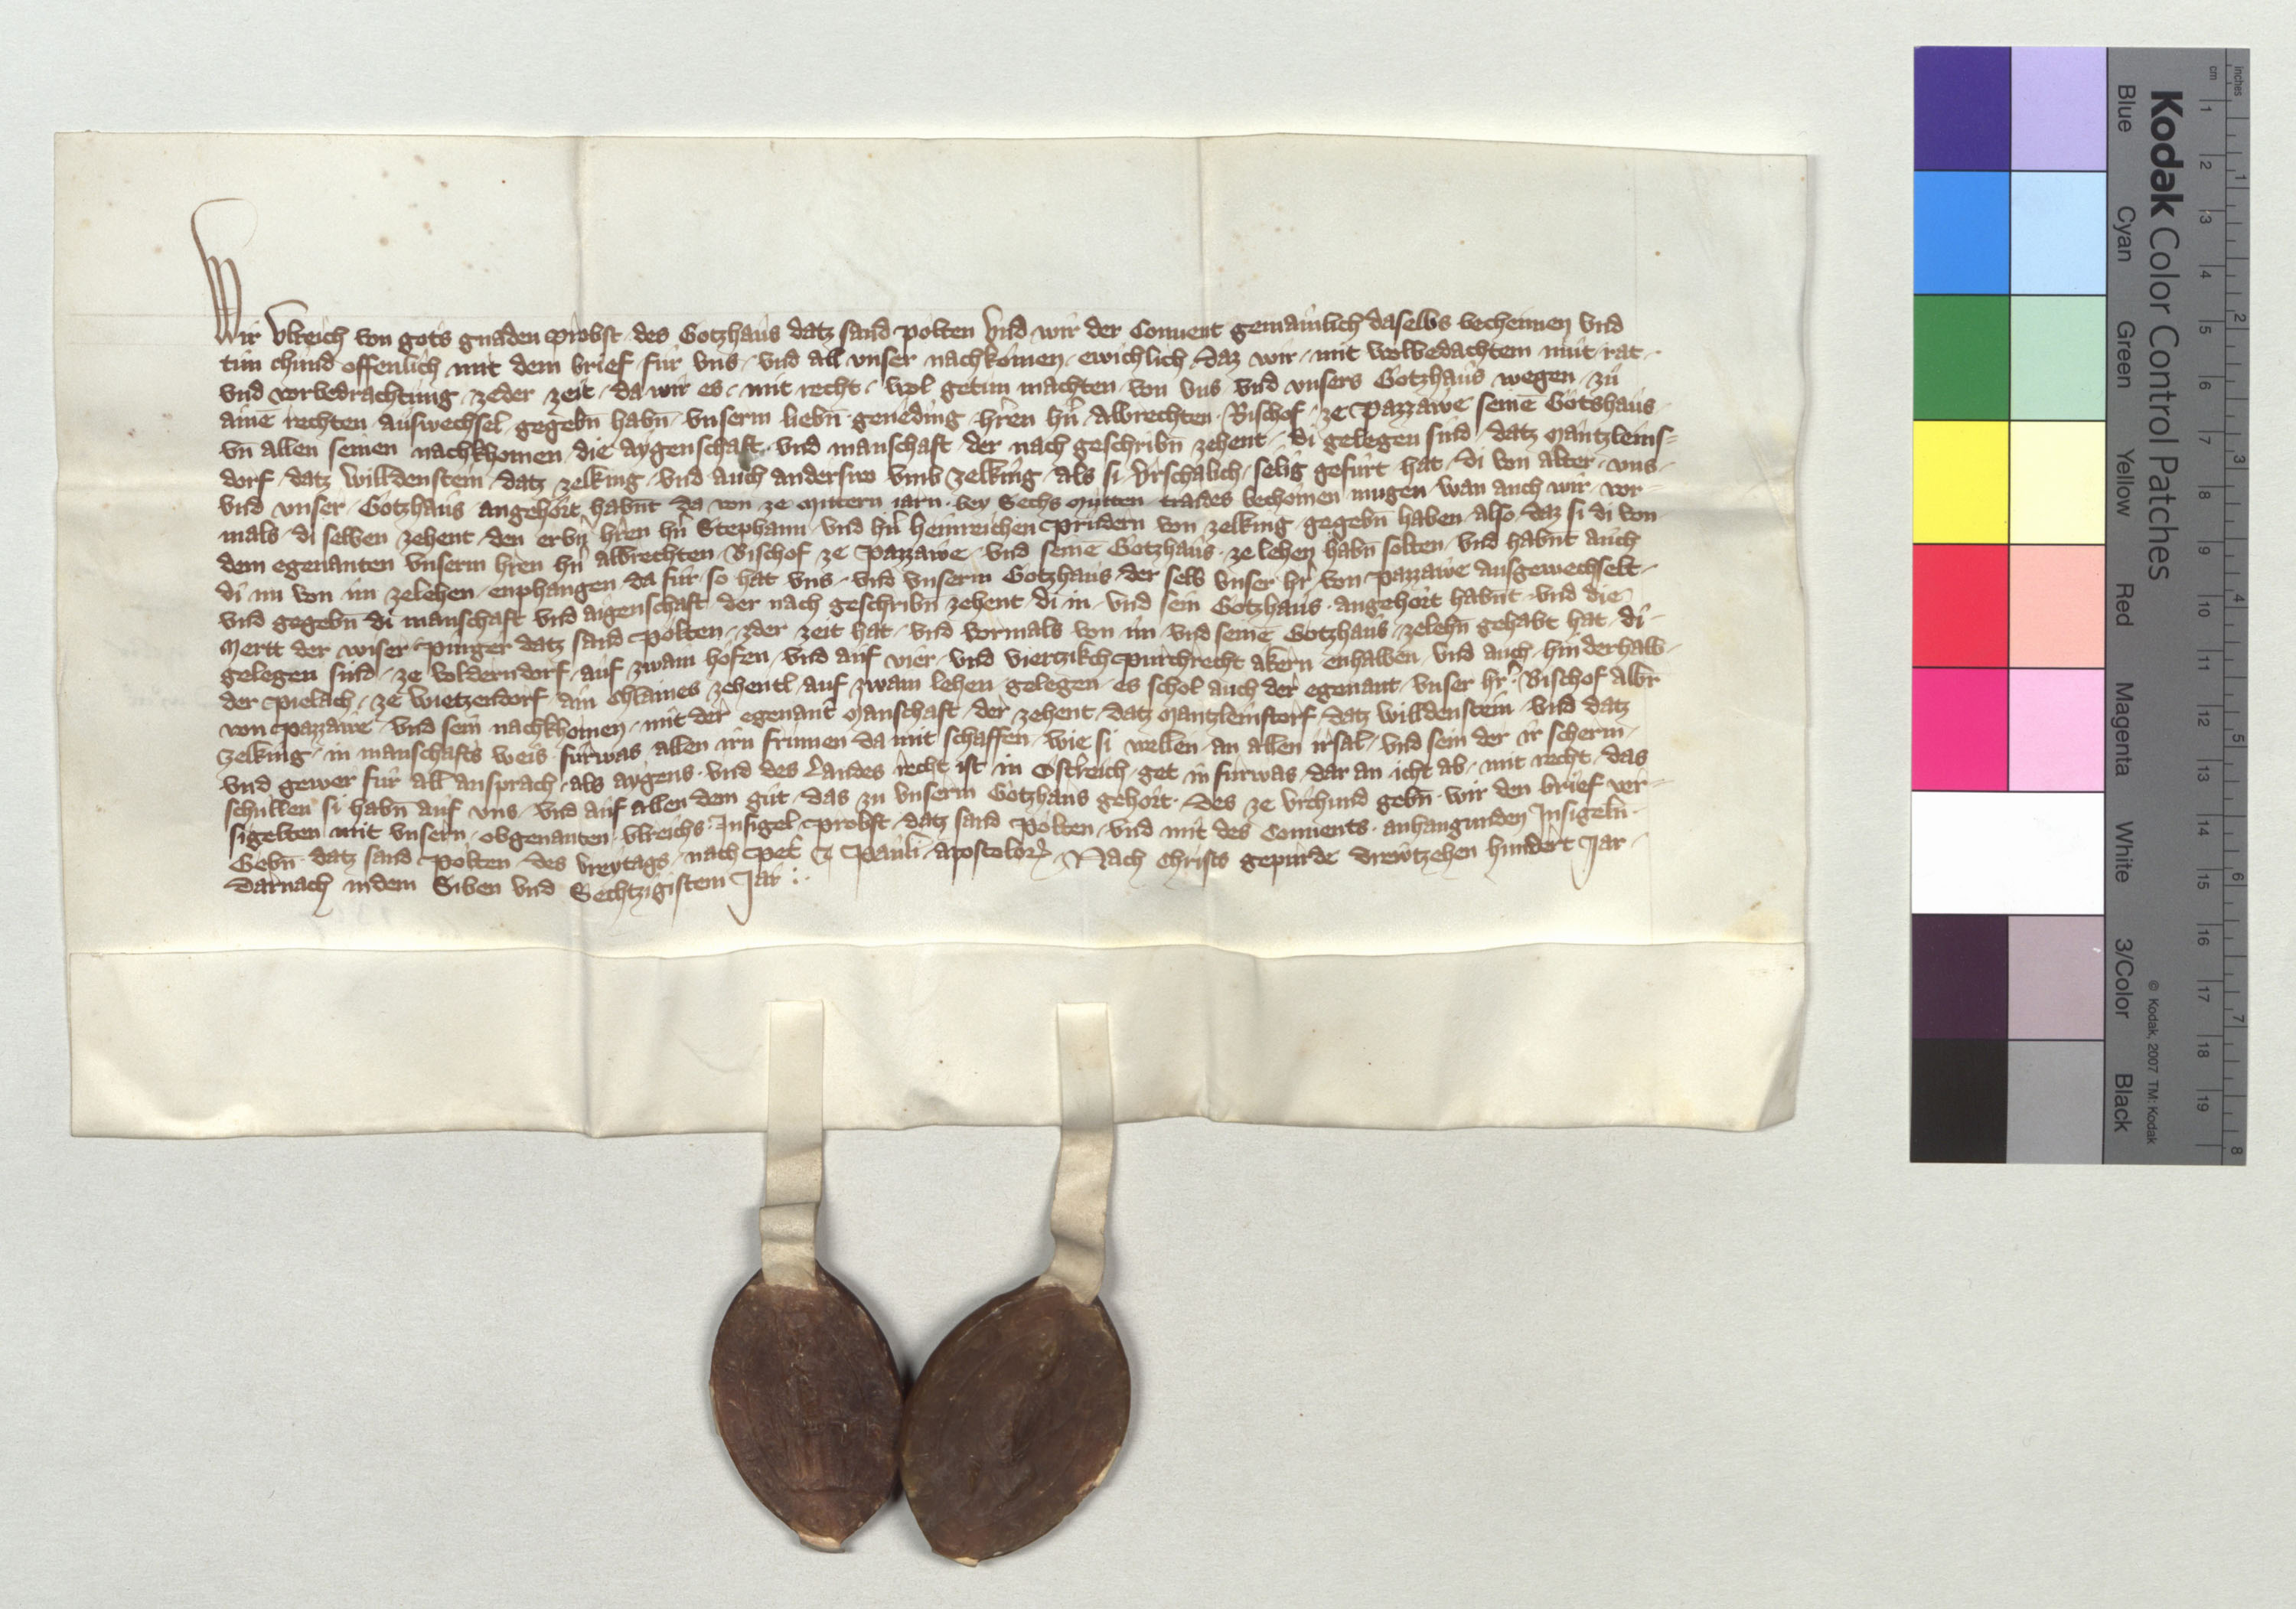 Wir Vlreich von gots gnaden Probst des Gotzhaus datz sand Polten Vnd wir der Conuent gemainlich daselbs bechennen vnd
tun chund offenlich mit dem brief fur vns vnd all vnser nachkomen ewichlich daz wir mit wolbedachtem mut rat
vnd vorbedrachtung zeder zeit da wir es mit recht wol getun machten von vns vnd vnsers Gotzhaus wegen zu
ainē rechten auswechsel gegebn̄ habn̄ vnserm liebn̄ geneding hren hn̄ Albrechten Bischof ze Pazzawe seinē Gotshaus
vn̄ allen seinen nachkhomen die aygenschaft vnd manschaft der nach geschribn̄ zehent di gelegen sind datz Mantzleins=
dorf datz Willdenstein datz Zelking vnd auch anderswo vmb Zelking als si Vrschalich selig gefurt hat di von alter vns
vnd vnser Gotzhaus angehort habn̄t da von ze mittern iarn bey Sechs Mutten traides bechomen mugen wan auch wir vor=
mals di selben zehent den erbn̄ hren hn̄ Stephann vnd hn̄ Heinreichen Prudern von Zelking gegebn̄ haben also daz si di von
dem egenanten vnserm hren hn̄ Albrechten Bischof ze Pazzawe vnd seinē Gotzhaus ze lehen habn̄ solten vnd habn̄t auch
di nu von im zelehen enphangen da fur so hat vns vnd vnserm Gotzhaus der selb vnser hr von Pazzawe ausgewechselt
vnd gegebn̄ di manschaft vnd aigenschaft der nach geschribn̄ zehent di in vnd sein Gotzhaus angehort habn̄t vnd die
Mertt der Wiser Purger datz sand Polten zder zeit hat vnd vormals von im vnd seinē Gotzhaus zelehn̄ gehabt hat di
gelegen sind ze Volderndorf auf zwain hofen vnd auf vier vnd viertzikch Purchrecht akern enhalben vnd auch hinderhalb
der Pielach ze Wietzendorf ain Chlaines zehentl auf zwain lehen gelegen es schol auch der egenant vnser hr Bischof Albr
von Pazzawe vnd sein nachkhomen mit der egenant Manschaft der zehent datz Mantzleinstorf datz Willdenstein vnd datz
Zelking in manschafts weis furwas allen irn frumen da mit schaffen wie si wellen an allen irsal vnd sein der ir scherm
vnd gewer fur all ansprach als aygens vnd des Landes recht ist in Osterich get in furwas dar an icht ab mit recht das
schullen si habn̄ auf vns vnd auf allen dem gut das zu vnserm Gotzhaus gehort Des ze vrchund gebn̄ wir den brief ver=
sigelten mit vnsern obgenanten Vlreichs Insigel Probst datz sand Polten vnd mit des Conuents anhangunden Insigeln
Gebn̄ datz sand Polten des Vreytags nach Pet̄ et Pauli apostolor̄ Nach Christs gepurde Drewtzehen hundert Jar
Darnach in dem Siben vnd Sechtzigistem Jar
Kodak Color Control Patches
Blue Cyan Green Yellow Red Magenta White 3/Color Black
© Kodak, 2007 TM: Kodak
cm 1 2 3 4 5 6 7 8 9 10 11 12 13 14 15 16 17 18 19
inches 1 2 3 4 5 6 7 8